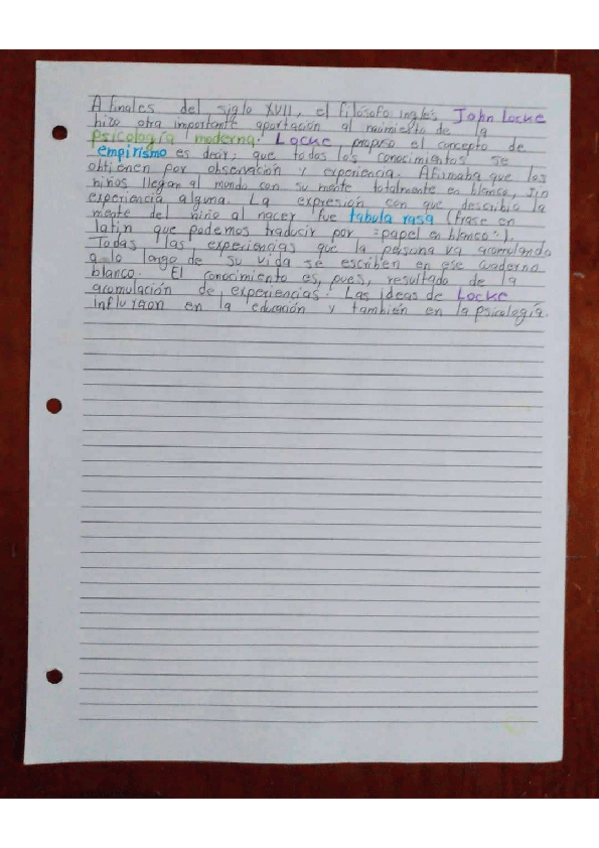 A finales del siglo XVII, el filósofo inglés John Locke
hizo otra importante aportación al nacimiento de la
psicología moderna. Locke, propuso el concepto de
empirismo es decir; que todos los conocimientos se
obtienen por observación y experiencia. Afirmaba que los
niños llegan al mundo con su mente totalmente en blanco, sin
experiencia alguna. La expresión con que describio la
mente del niño al nacer fue tabula rasa (frase en
latín que podemos traducir por "papel en blanco").
Todas las experiencias que la persona va acumulando
a lo largo de su vida se escriben en ese cuaderno
blanco. El conocimiento es, pues, resultado de la
acumulación de experiencias. Las ideas de Locke
influyeron en la educación y también en la psicología.